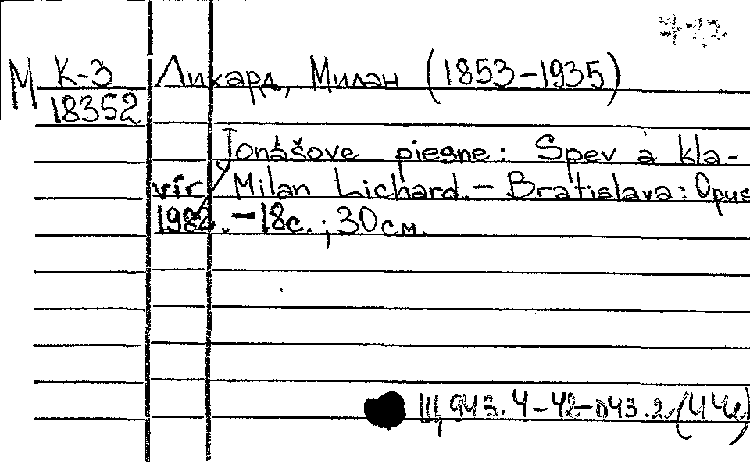 М К-3 Лихард, Милан (1853-1935)
18352
Jonášove piesne: Spev a kla-
vír / Milan Lichard. - Bratislava: Opus
1982. - 18с.; 30см.
Щ943.4-42-043.2(4Че)